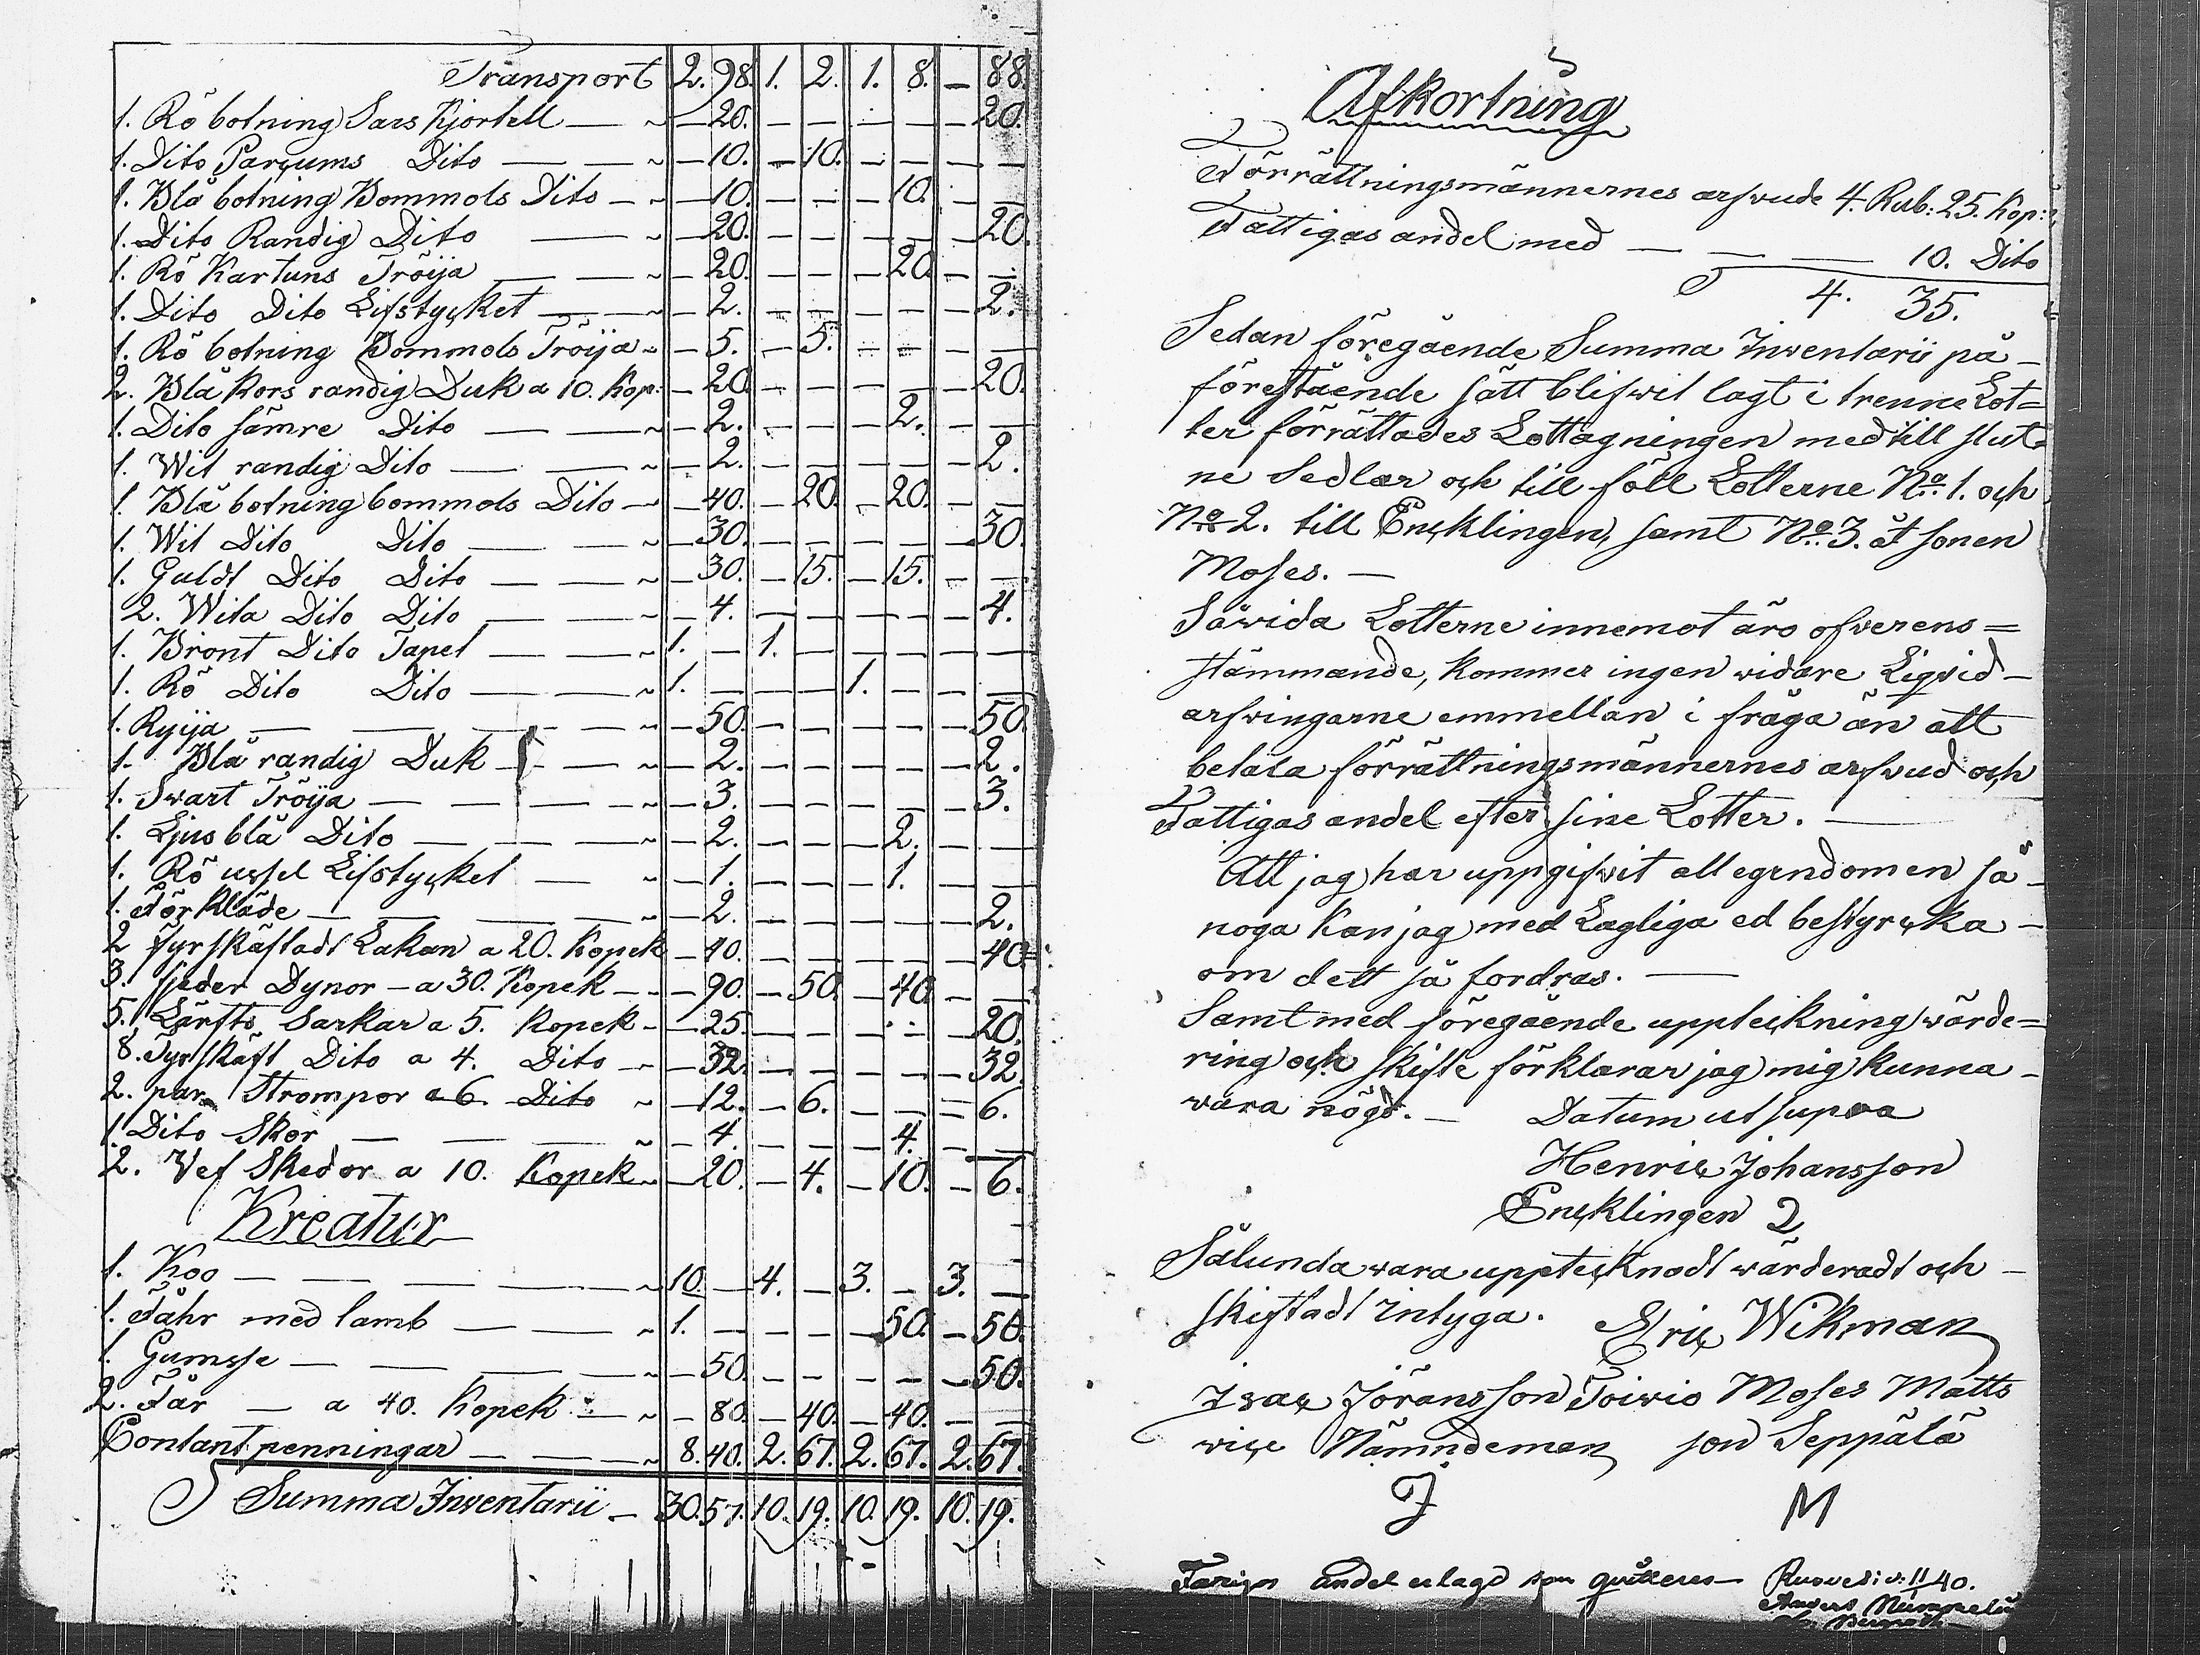 Transport 2. 98. 1. 2. 1. 8. — 88.
1. Rö botning Sars Kjortell — ~ — 20. — — — — — 20.
1. Dito Parcums Dito — — ~ — 10. — 10. — — — —
1. Blå botning Bommols Dito — ~ — 10. — — — 10. — —
1. Dito Randig Dito — ~ — 20. — — — — — 20.
1. Rö Kartuns Tröija — — ~ — 20. — — — 20. — —
1. Dito Dito Lifstycket — ~ — 2. — — — — — 2.
1. Rö botning Bommols Tröija ~ — 5. — 5. — — — —
2. Blå Kors randig Duk a 10. Kop: — 20. — — — — — 20.
1. Dito sämre Dito — — ~ — 2. — — — 2. — —
1. Wit randig Dito — — ~ — 2. — — — — — 2.
1. Blå botning bommols Dito — ~ — 40. — 20. — 20. — —
1. Wit Dito Dito — — ~ — 30. — — — — — 30.
1. Guldt Dito Dito — — ~ — 30. — 15. — 15. — —
2. Wita Dito Dito — — ~ — 4. — — — — — 4.
1. Bront Dito Tapet — — ~ 1. — 1. — — — — —
1. Rö Dito Dito — — ~ 1. — — — 1. — — —
1. Ryija — — — ~ — 50. — — — — — 50.
1. Blå randig Duk — — ~ — 2. — — — — — 2.
1. Swart Tröija — — — ~ — 3. — — — — — 3.
1. Ljus blå Dito — — — ~ — 2. — — — 2. — —
1. Rö ussel Lifstycket — ~ — 1. — — — 1. — —
1. Förkläde — — — ~ — 2. — — — — — 2.
2 fyrskäftadt Lakan a 20. Kopek — 40. — — — — — 40.
3. fjeder Dynor — a 30. Kopek — — 90. — 50. — 40. — —
5. Lärfts Sarkar a 5. Kopek — — 25. — — — — — 20.
8. Fyrskäft Dito a 4. Dito — — 32. — — — — — 32.
2. par Strompor a 6. Dito ~ — 12. — 6. — — — 6.
1 Dito Skor — — — ~ — 4. — — — 4. — —
2. Vef Skedor a 10. Kopek ~ — 20. — 4. — 10. — 6.
Kreatur
1. Koo — — — ~ 10. — 4. — 3. — 3. —
1. Fåhr med lamb — — ~ 1. — — — — 50. — 50.
1. Gumsse — — — ~ — 50. — — — — — 50.
2. Får — a 40. Kopek — ~ — 80. — 40. — 40. — —
Contant penningar — — ~ 8. 40. 2. 67. 2. 67. 2. 67.
Summa Inventarii — 30. 57. 10. 19. 10. 19. 10. 19.
Afkortning
Förrättningsmännernes arfwude 4. Rub: 25. Kop:
Fattigas andel med — — — 10. Dito
4. 35.
Sedan föregående Summa Inwentarii på —
förestäende sätt blifwit lagt i trenne Lot=
ter förrättades Lottagningen med till slut=
ne Sedlar och till föll Lotterne No. 1. och
No. 2. till Encklingen, samt No. 3. åt sonen
Moses. —
Såwida Lotterne innemot äro ofwerens=
stämmande, kommer ingen widare Liqvid —
arfwingarne emmellan i fråga än att
betala förrättningsmännernes arfwud och
Fattigas andel efter sine Lotter. —
Att jag har uppgifwit all egendomen så —
noga kan jag med Lagliga ed bestyrcka —
om dett så fordras. —
Samt med föregående uppteckning wärde=
ring och skifte förklarar jag mig kunna —
wara nögd. — Datum ut supra
Henric Johansson
Encklingen
Sålunda wara uppteknadt wärderadt och —
skiftadt intyga. Eric Wikman
Isac Jöransson Toiwio Moses Matts
wice Nämndeman son Seppälä
J M
andel erlagd som qvitteras — Ruovesi d. 11/ 40.
Anders